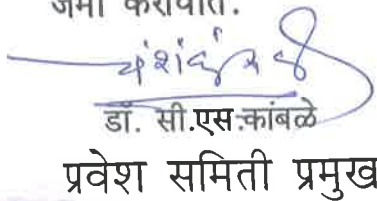 जमा करावात.
डॉ. सी.एस.कांबळे
प्रवेश समिती प्रमुख